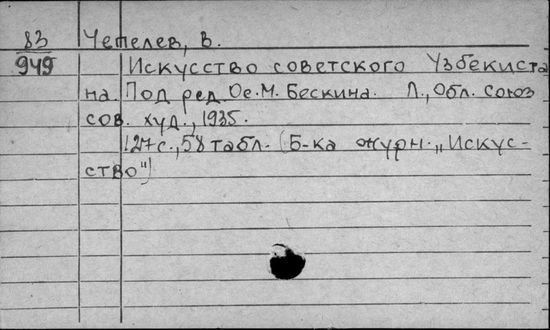 83
949
Чепелев, В.
Искусство советского Узбекиста
на. Под ред. Ос. М. Бескина. Л., Обл. союз
сов. худ., 1935.
127 с., 58 табл. (Б-ка журн. „Искус-
ство")